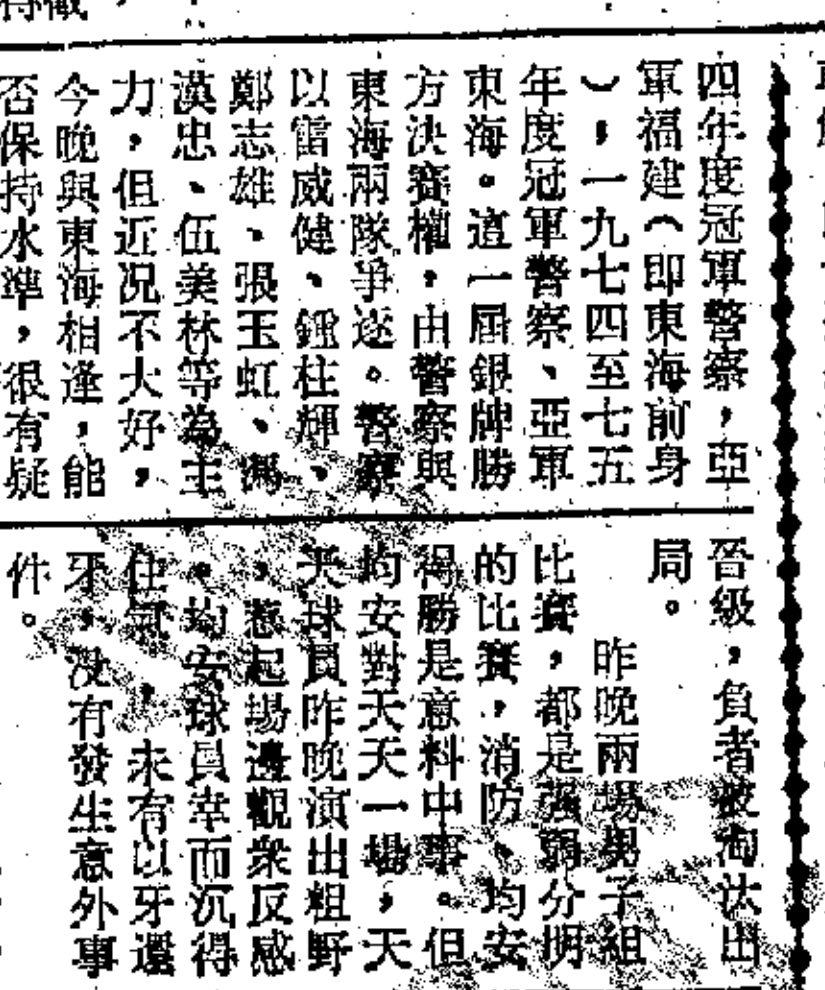 四年度冠軍警察，亞
軍福建（即東海前身
），一九七四至七五
年度冠軍警察、亞軍
東海。這一屆銀牌勝
方決賽權，由警察與
東海兩隊爭逐。警察
以雷威健、鍾柱輝、
鄭志雄、張玉虹、馮
漢忠、伍美林等為主
力，但近況不大好，
今晚與東海相逢，能
否保持水準，很有疑
晉級，負者被淘汰出
局。
昨晚兩場男子組
比賽，都是強弱分明
的比賽，消防、均安
得勝是意料中事。但
均安對天天一場，天
天球員昨晚演出粗野
，惹起場邊觀衆反感
。均安球員幸而沉得
住氣，未有以牙還
牙，没有發生意外事
件。